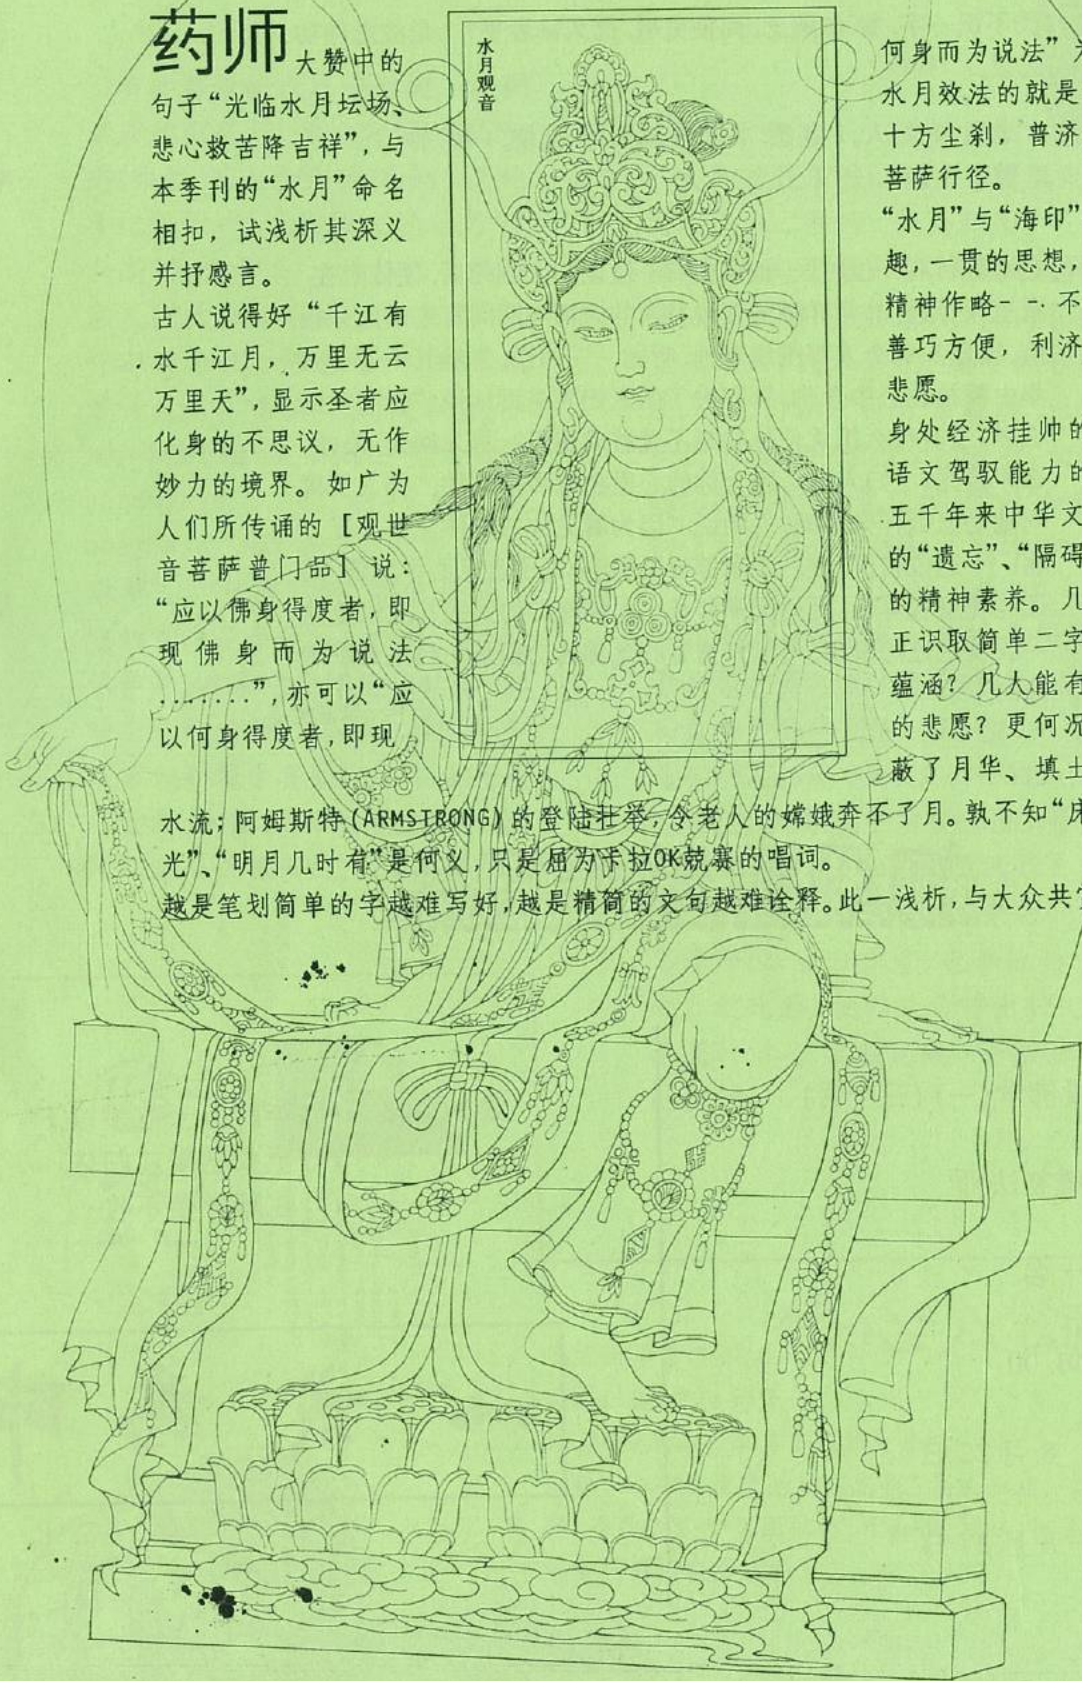 药师大赞中的
句子“光临水月坛场、
悲心救苦降吉祥”, 与
本季刊的“水月”命名
相扣，试浅析其深义
并抒感言。
古人说得好“千江有
水千江月，万里无云
万里天”, 显示圣者应
化身的不思议，无作
妙力的境界。如广为
人们所传诵的［观世
音菩萨普门品］说：
“应以佛身得度者, 即
现佛身而为说法
........”, 亦可以“应
以何身得度者, 即现
水月观音
何身而为说法”
水月效法的就是
十方尘刹，普济
菩萨行径。
“水月”与“海印”
趣, 一贯的思想,
精神作略--. 不
善巧方便，利济
悲愿。
身处经济挂帅的
语文驾驭能力的
五千年来中华文
的“遗忘”、“隔碍
的精神素养。几
正识取简单二字
蕴涵？几人能有
的悲愿？更何况
蔽了月华、填土
水流；阿姆斯特(ARMSTRONG)的登陆壮举, 令老人的嫦娥奔不了月。孰不知“床
光”、“明月几时有”是何义, 只是屈为卡拉OK兢赛的唱词。
越是笔划简单的字越难写好, 越是精简的文句越难诠释。此一浅析, 与大众共